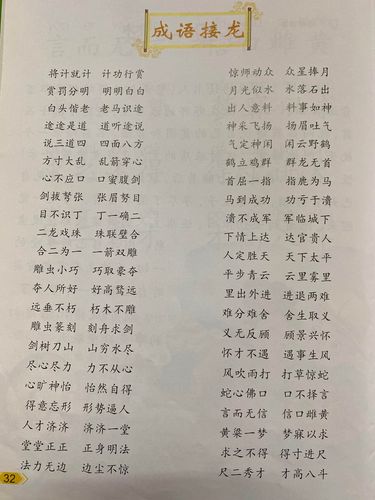 成语接龙
将计就计 计功行赏
赏罚分明 明明白白
白头偕老 老马识途
途途是道 道听途说
说三道四 四面八方
方寸大乱 乱箭穿心
心不应口 口蜜腹剑
剑拔弩张 张眉努目
目不识丁 丁一确二
二龙戏珠 珠联璧合
合二为一 一箭双雕
雕虫小巧 巧取豪夺
夺人所好 好高骛远
远垂不朽 朽木不雕
雕虫篆刻 刻舟求剑
剑树刀山 山穷水尽
尽心尽力 力不从心
心旷神怡 怡然自得
得意忘形 形势逼人
人才济济 济济一堂
堂堂正正 正身明法
法力无边 边尘不惊
惊师动众 众星捧月
月光似水 水落石出
出人意料 料事如神
神采飞扬 扬眉吐气
气定神闲 闲云野鹤
鹤立鸡群 群龙无首
首屈一指 指鹿为马
马到成功 功亏于溃
溃不成军 军临城下
下情上达 达官贵人
人定胜天 天下太平
平步青云 云里雾里
里出外进 进退两难
难分难舍 舍生取义
义无反顾 顾景兴怀
怀才不遇 遇事生风
风吹雨打 打草惊蛇
蛇心佛口 口不择言
言而无信 信口雌黄
黄粱一梦 梦寐以求
求之不得 得寸进尺
尺二秀才 才高八斗
32